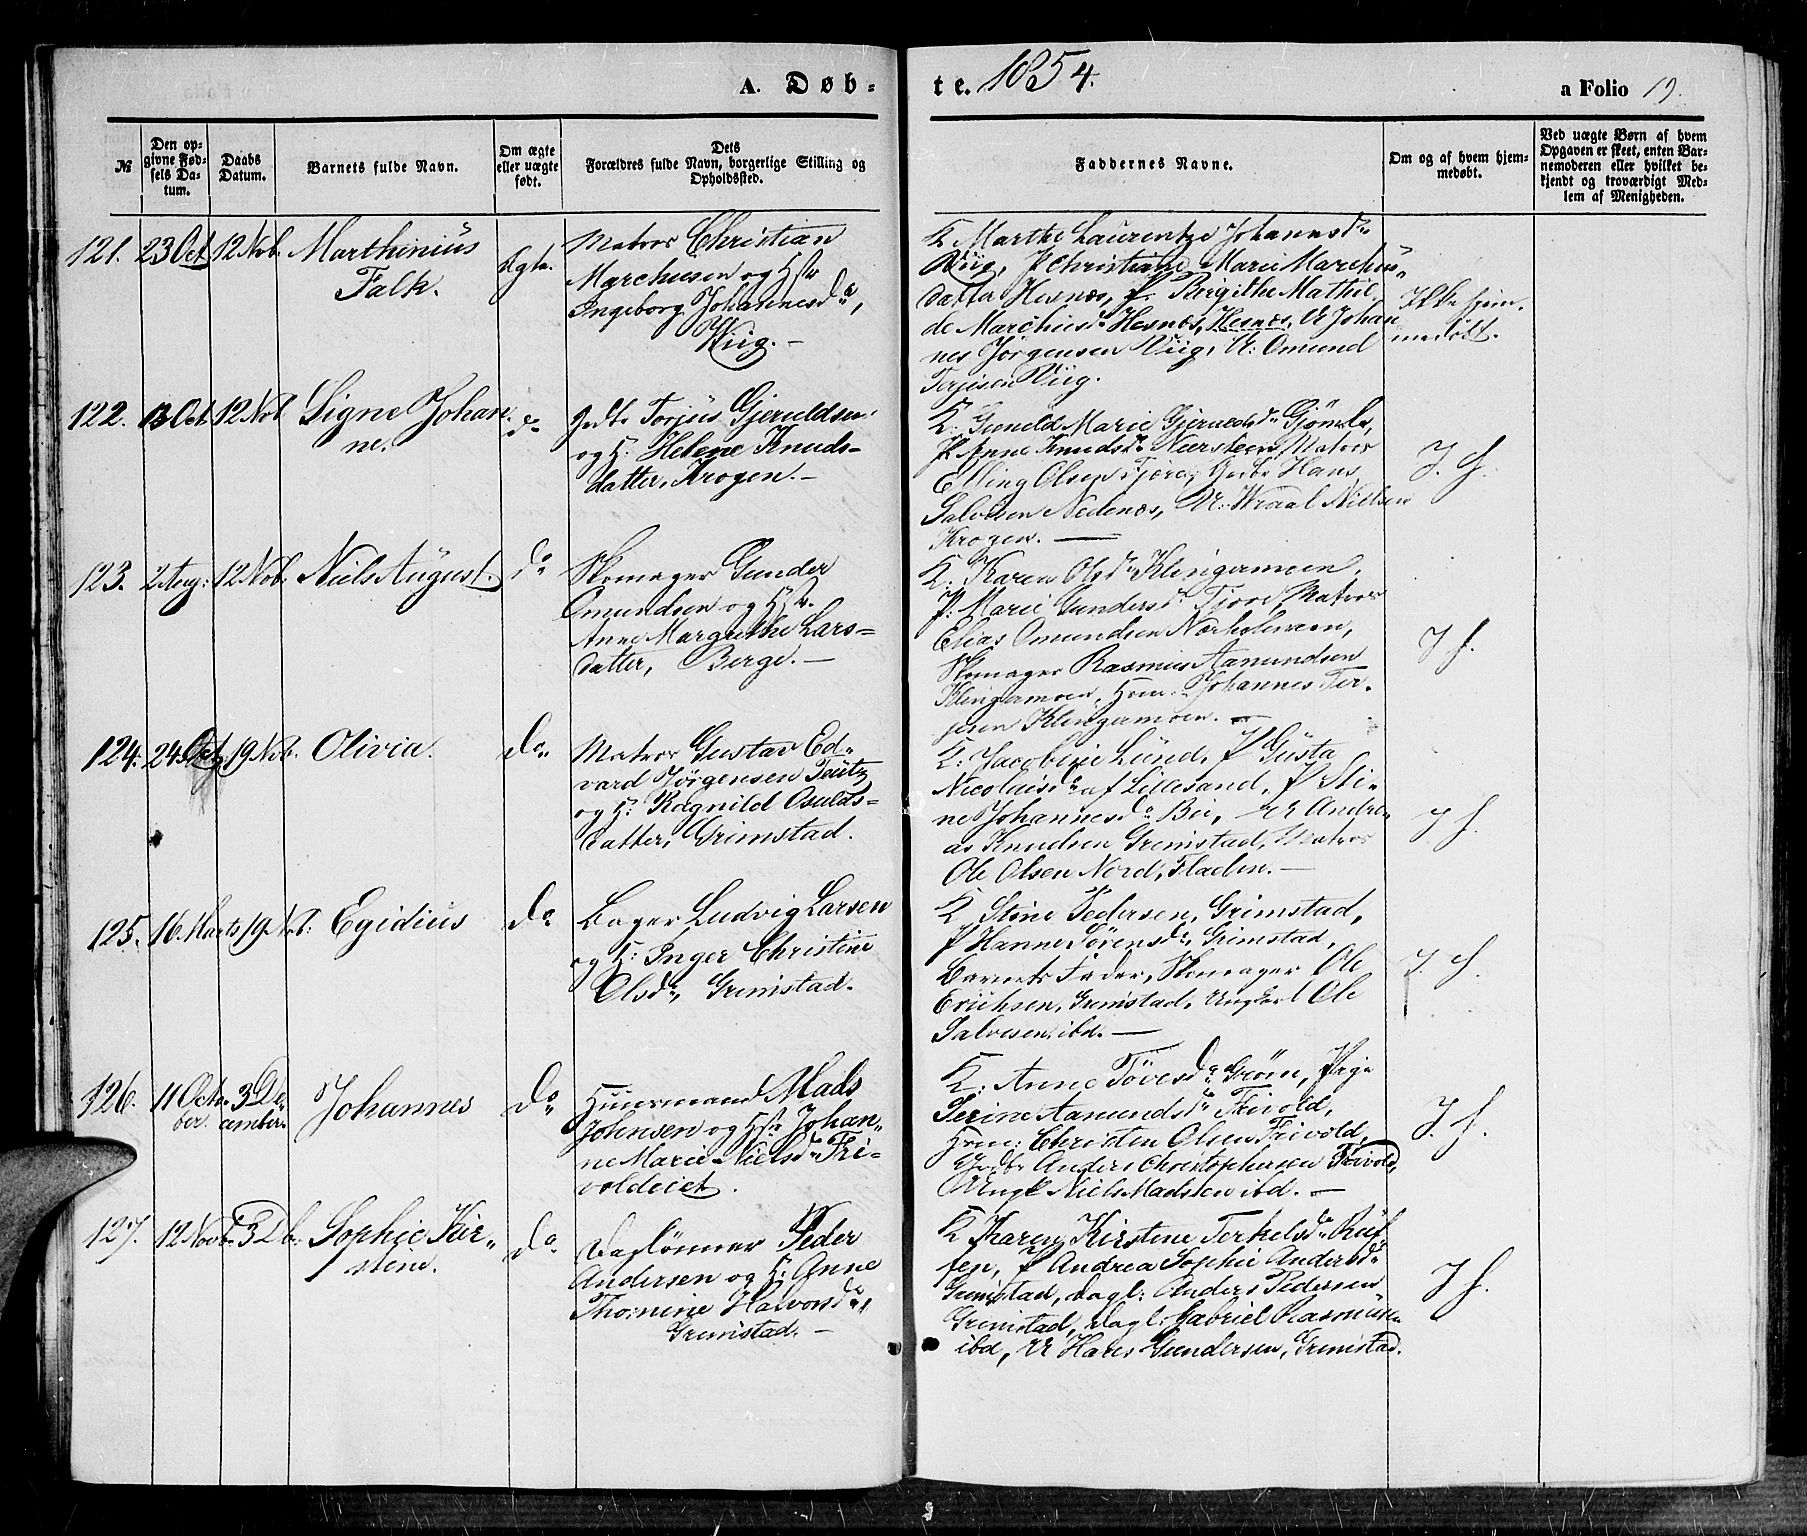 A. Døb-
te. 1854.
a Folio 19.
№
Den op-
givne Fød-
sels Da-
tum.
Daabs
Datum.
Barnets fulde Navn.
Om ægte
eller uægte
født.
Dets
Forældres fulde Navn, borgerlige Stilling og
Opholdssted.
Faddernes Navne.
Om og af hvem hjem-
medøbt.
Ved uægte Børn af hvem
Opgaven er skeet, enten Bar-
nemoderen eller hvilket be-
kjendt og troværdigt Med-
lem af Menigheden.
121. 23 Oct 12 Nob. Marthinius
Falk.
Ægte.
Matros Christian
Marchusen og Hstr
Ingeborg Johannesda,
Wiig. –
K Marthe Laurentze Johannsdr
Viig, P Christiane Marie Marchus-
datter Hesnæs, P. Birgithe Mathil-
de Marchusdr Hesnæs, Hesnæs, U Johan
nes Jörgensen Viig, U: Omund
Terjesen Viig.
Ikke hjem-
medöbt.
122. 13 Oct 12 Nob Signe Johan
ne.
do
Gdbr Torjus Gjeruldsen
og H: Helene Knuds-
datter, Krogen. –
K: Gunild Marie Gjeruldsdr Gjömle,
P. Anne Knudsdr Nærsteen, Matros
Elling Olsen Fjære, Gdbr Hans
Salvesen Nedenæs, U: Wraal Nielsen
Krogen. —
I. H.
123. 2 Aug: 12 Nob. Niels August.
do
Skomager Gunder
Omundsen og Hstr.
Anne Margrethe Lars-
datter, Berge. –
K. Karen Olsdr Klingermoen,
P: Marie Gundersdr Fjære, Matros
Elias Omundsen Nørholmeen,
Skomager Rasmus Aamundsen
Klingermoen, Hsm: Johannes Ter-
jesen Klingermoen. –
I H.
124. 24 Oct 19 Nob. Olivia.
do
Matros Gustav Ed-
vard Jörgensen Teütz
og H. Ragnild Osulds-
datter, Grimstad.
K: Jacobine Lund, P Gusta
Nicolaisdr af Lillesand, P Sti-
ne Johannesdr Bie, U Andre-
as Knudsen Grimstad, Matros
Ole Olsen Nord, Fladen. –
I H.
125. 16 Marts 19 Nob: Egidius
do
Bager Ludvig Larsen
og H: Inger Christine
Olsdr, Grimstad.
K Stine Pedersen, Grimstad,
P Hanne Sörensdr, Grimstad,
Barnets Fader, Skomager Ole
Erichsen, Grimstad, Ungkarl Ole
Salvesen, ibd. —
I. H.
126. 11 Octo-
ber. 3 De-
cember. Johannes
do
Huusmand Mads
Johnsen og Hstr Johan-
ne Marie Nielsdr Fri-
voldeiet.
K: Anne Tövesdr Gröm, Pige
Serine Aamundsdr Frivold,
Hsm: Christen Olsen Frivold,
Gdbr Anders Christophersen Frivold,
Ungk Niels Madssen ibd. –
I. H.
127. 12 Novbr 3 Db. Sophie Kir-
stine.
do
Daglönner Peder
Andersen og H: Anne
Thomine Halvorsdr,
Grimstad. –
K Karen Kirstine Terkelsdr Rüf-
fen, P Andrea Sophie Andersdr
Grimstad, Dagl: Anders Pedersen
Grimstad, Dagl. Gabriel Rasmusen
ibd, U Hans Gundersen, Grimstad.
I H.